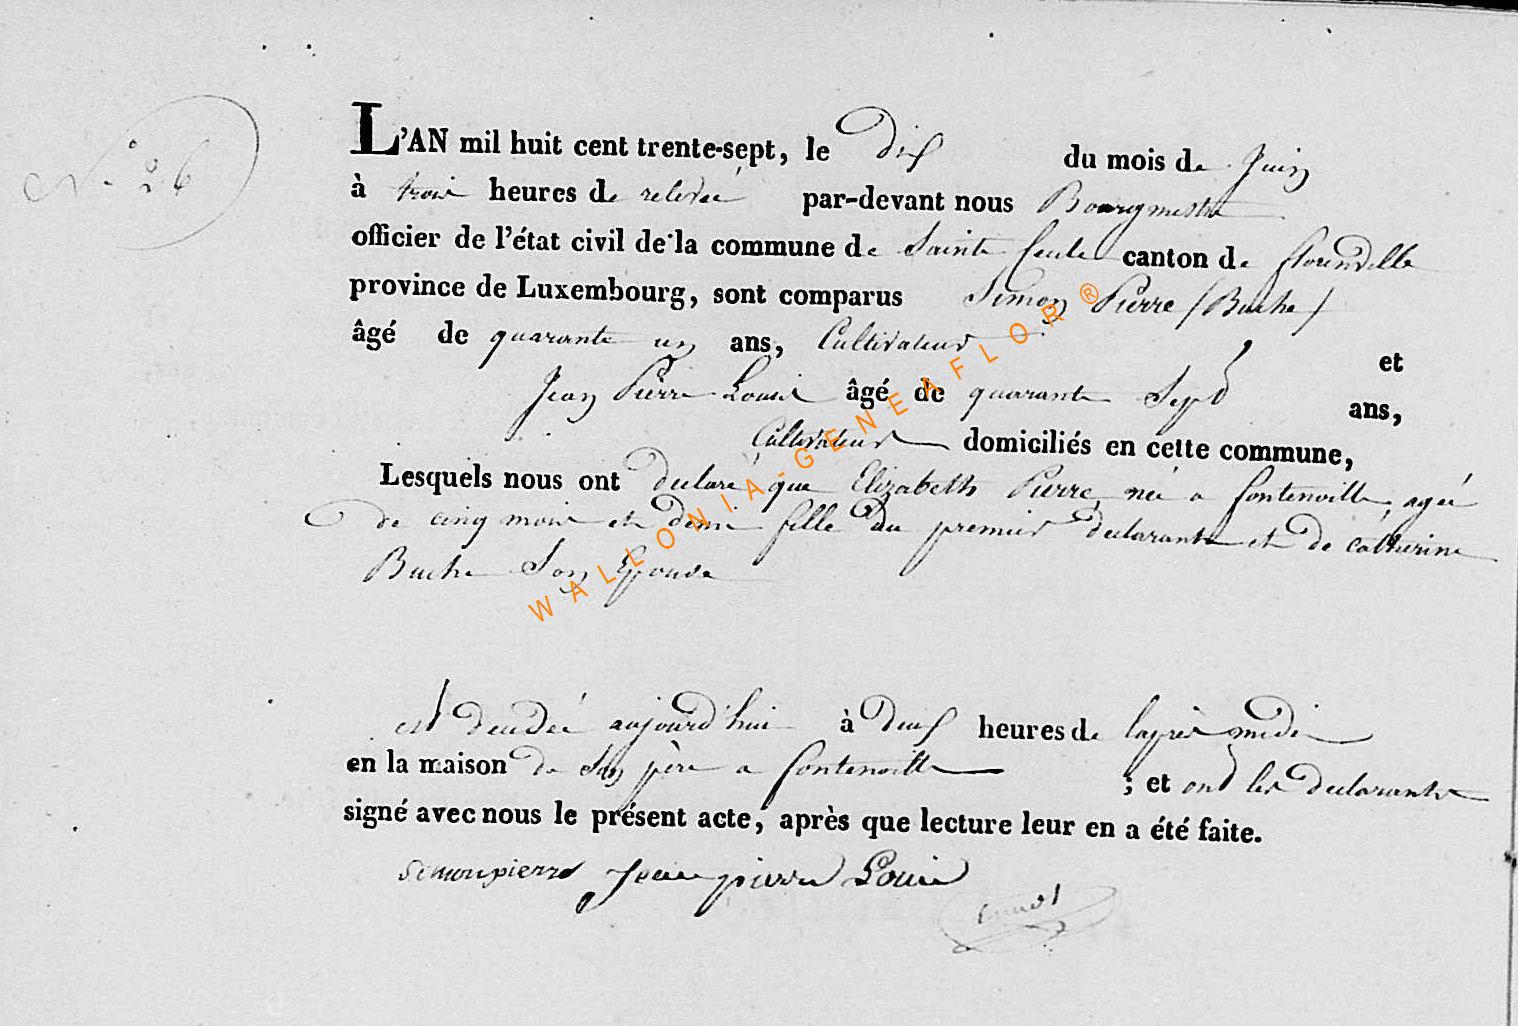 N° 26
L'AN mil huit cent trente-sept, le Dix du mois de Juin
à trois heures de relevée par-devant nous Bourgmestre
officier de l'état civil de la commune de Sainte Cecile canton de florenville
province de Luxembourg, sont comparus Simon Pierre (Buche)
âgé de quarante un ans, Cultivateur et
Jean Pierre Louis âgé de quarante Sept ans,
Cultivateur domiciliés en cette commune,
Lesquels nous ont declaré que Elizabeth Pierre, née a fontenoille, agée
de cinq mois et demi fille du premier declarant et de catherine
Buche Son Epouse
est decedée aujourd'hui à deux heures de laprès midi
en la maison de Son père a fontenoille ; et ont les declarants
signé avec nous le présent acte, après que lecture leur en a été faite.
Simon pierre Jean pierre Louis
WALLONIA-GENEAFLOR®